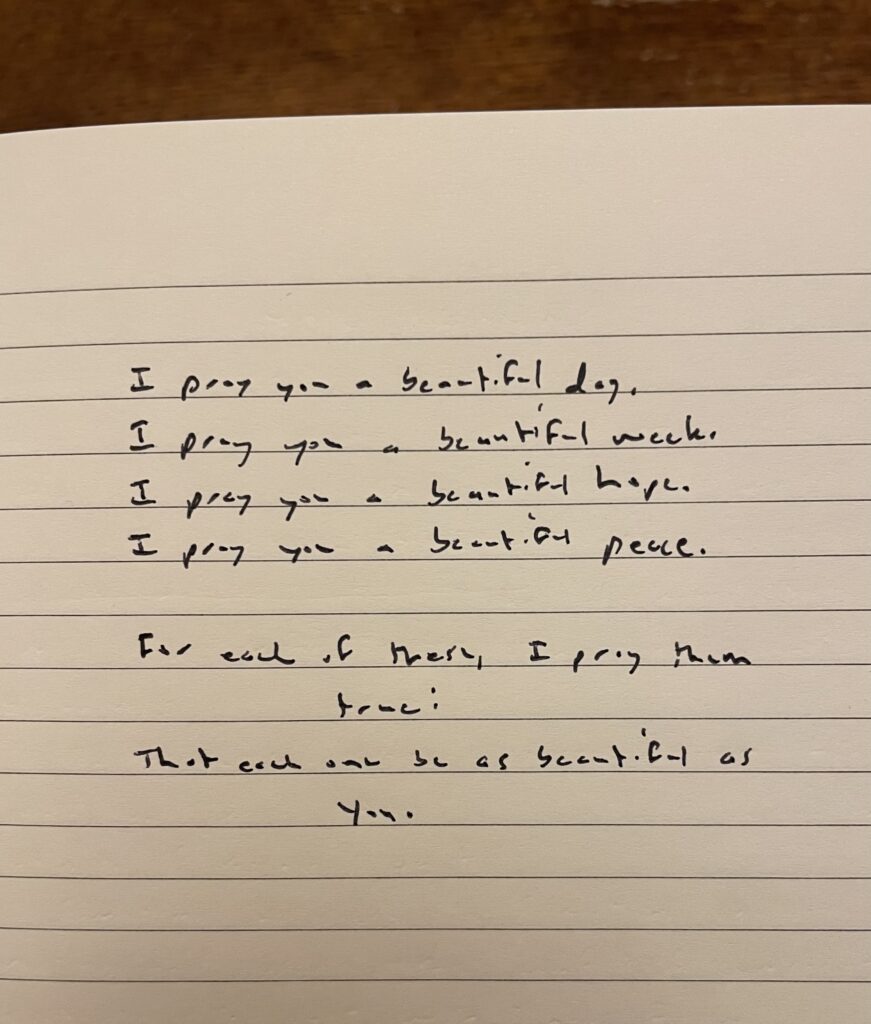 I pray you a beautiful day.
I pray you a beautiful week.
I pray you a beautiful hope.
I pray you a beautiful peace.
For each of these, I pray them
true:
That each one be as beautiful as
you.